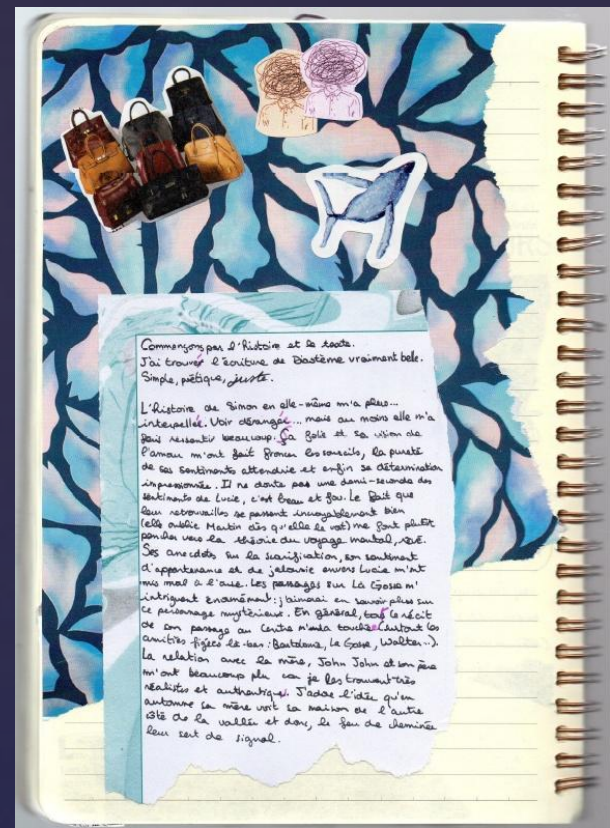 Commençons par l'histoire et le texte.
J'ai trouvé l'écriture de Biastème vraiment belle.
Simple, poétique, juste.
L'histoire de Simon en elle-même m'a plus...
interpellée. Voir dérangée... mais au moins elle m'a
fais ressentir beaucoup. Ça folie et sa vision de
l'amour m'ont fait froncer les sourcils, la pureté
de ses sentiments attendrie et enfin sa détermination
impressionnée. Il ne doute pas une demi-seconde des
sentiments de Lucie, c'est beau et fou. Le fait que
leur retrouvailles se passent incroyablement bien
(elle oublie Martin dès qu'elle le voit) me font plutôt
pencher vers la théorie du voyage mental, rêvé.
Ses anecdots sur la scarification, son sentiment
d'appartenance et de jalousie envers Lucie m'ont
mis mal à l'aise. Les passages sur La Gosse m'
intriguent énormément : j'aimerai en savoir plus sur
ce personnage mystérieux. En général, tout le récit
de son passage au Centre m'a touchée (surtout les
amitiés figées là-bas : Bartdama, Le Gosse, Walter...).
La relation avec la mère, John John et son père
m'ont beaucoup plu car je les trouvent très
réalistes et authentique. J'adore l'idée qu'en
automne sa mère voit sa maison de l'autre
côté de la vallée et donc, le feu de cheminée
leur sert de signal.